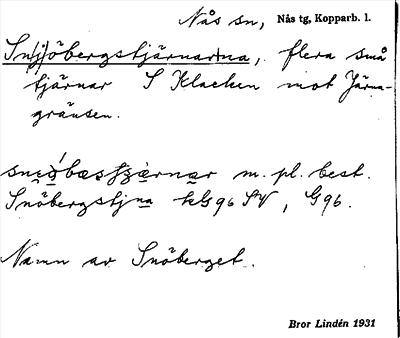 Nås sn, Nås tg, Kopparb. l.
Sn(j)öbergstjärnarna, flera små
tjärnar S Klacken mot Järna-
gränsen.
m. pl. best.
Snöbergstjna kG96 SV, G96.
Namn av Snöberget.
Bror Lindén 1931